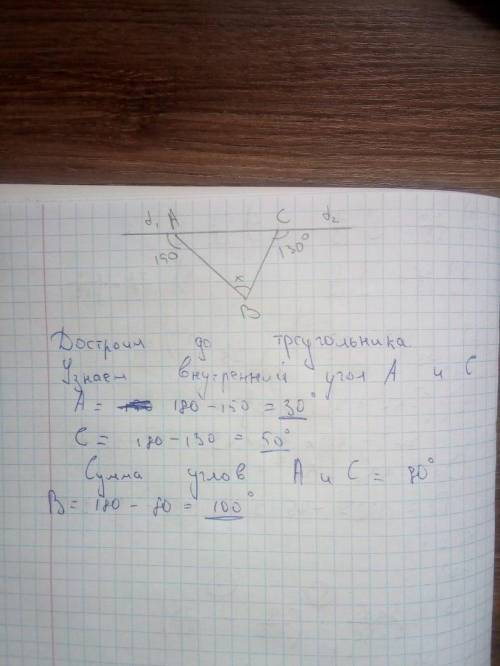 d₁ A C d₂
150 130°
x
B
Достроим до треугольника
Узнаем внутренний угол A и C
A = 180 - 150 = 30°
C = 180 - 130 = 50°
Сумма углов A и C = 80°
B = 180 - 80 = 100°